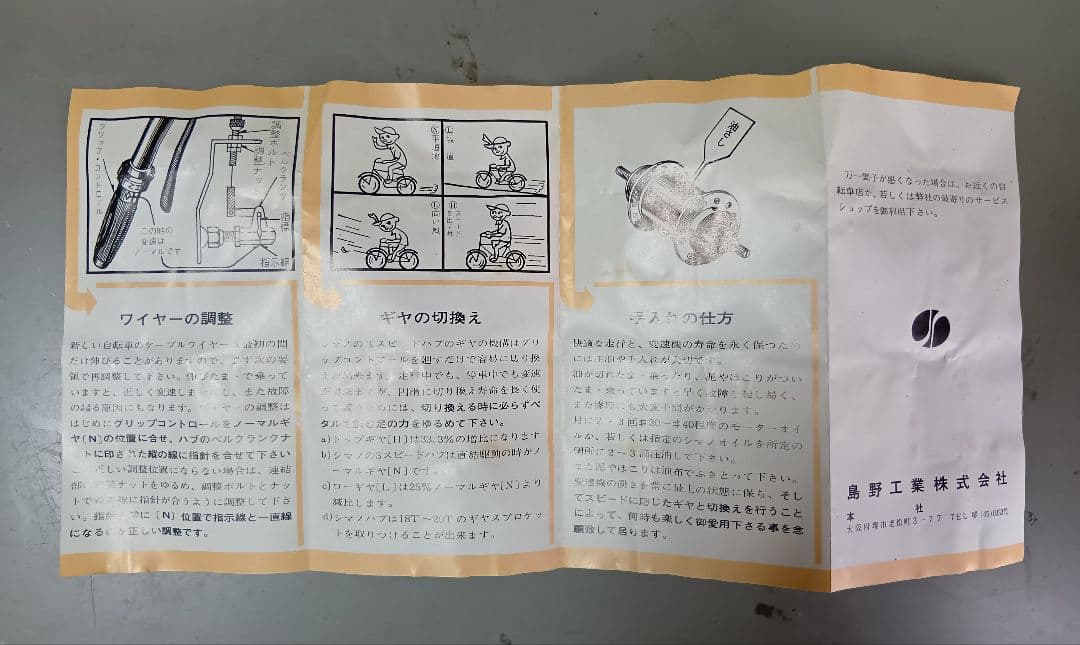 グリップ・コントロール
この時の
変速は
ノーマルです
調整ボルト
調整ナット
ベルクランク
指標
指示線
ワイヤーの調整
新しい自転車のケーブルワイヤーは最初の間
だけ伸びることがありますので、必ず次の要
領で再調整して下さい。伸びたまゝで乗って
いますと、正しく変速しませんし、また故障
の起る原因にもなります。ワイヤーの調整は
はじめにグリップコントロールをノーマルギ
ヤ〔N〕の位置に合せ、ハブのベルクランクナ
ットに印された縦の線に指針を合せて下さい
正しい調整位置にならない場合は、連結
部の ナットをゆるめ、調整ボルトとナッ
トで の線に指針が合うように調整して下さ
い。指針が 〔N〕位置で指示線と一直線
になるのが正しい調整です。
平坦地
向い風
スピードを出す時
ギヤの切換え
シマノの3スピードハブのギヤの機構はグリ
ップコントロールを廻すだけで容易に切り換
えが出来ます。走行中でも、停車中でも変速
が出来ますが、円滑に切り換え寿命を長く使
って には、切り換える時に必らずペ
タルを踏む足の力をゆるめて下さい。
a)トップギヤ〔H〕は33.3%の増比になります
b)シマノの3スピードハブは直結駆動の時がノ
ーマルギヤ〔N〕です。
c)ローギヤ〔L〕は25%ノーマルギヤ〔N〕より
減比します。
d)シマノハブは18T〜20Tのギヤスプロケッ
トを取りつけることが出来ます。
油さし
手入れの仕方
快適な走行と、変速機の寿命を永く保つため
には注油や手入れが大切です。
油が切れたまゝ乗ったり、泥やほこりがつい
たまゝ乗っていますと早く故障を起し易く、
また修理にも大変手間がかかります。
月に2・3回#30〜#40程度のモーターオイ
ルか、若しくは指定のシマノオイルを所定の
個所に2〜3滴注油して下さい。
また泥やほこりは油布でふきとって下さい。
変速機の働きを常に最上の状態に保ち、そし
てスピードに応じたギヤと切換えを行うこと
によって、何時も楽しく御愛用下さる事を念
願致して居ります。
万一調子が悪くなった場合は、お近くの自
転車店か、若しくは弊社の最寄りのサービス
ショップを御利用下さい。
島野工業株式会社
本社
大阪府堺市老松町3-77 TEL 堺